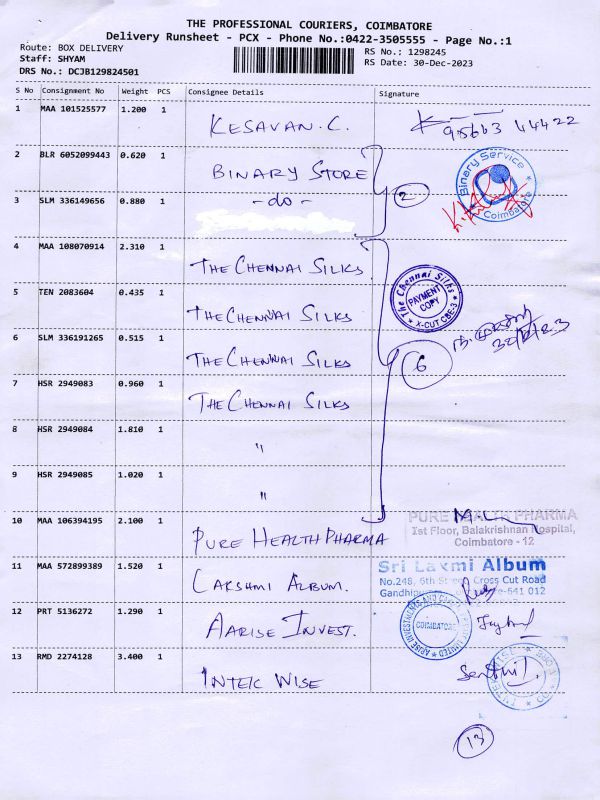 THE PROFESSIONAL COURIERS, COIMBATORE
Delivery Runsheet - PCX - Phone No.:0422-3505555 - Page No.:1
Route: BOX DELIVERY
RS No.: 1298245
Staff: SHYAM
RS Date: 30-Dec-2023
DRS No.: DCJB129824501
S No Consignment No Weight PCS Consignee Details Signature
1 MAA 101525577 1.200 1 KESAVAN.C. 95663 44422
2 BLR 6052099443 0.620 1 BINARY STORE
Binary Service Coimbatore
3 SLM 336149656 0.880 1 -do-
2
4 MAA 108070914 2.310 1 THE CHENNAI SILKS
The Chennai Silks
PAYMENT
COPY
X-CUT CBE-3
5 TEN 2083604 0.435 1 THE CHENNAI SILKS
30/12/23
6 SLM 336191265 0.515 1 THE CHENNAI SILKS
6
7 HSR 2949083 0.960 1 THE CHENNAI SILKS
8 HSR 2949084 1.810 1 "
9 HSR 2949085 1.020 1 "
10 MAA 106394195 2.100 1 PURE HEALTH PHARMA
PURE HEALTH PHARMA
1st Floor, Balakrishnan Hospital,
Coimbatore - 12
11 MAA 572899389 1.520 1 LAKSHMI ALBUM.
Sri Laxmi Album
No.248, 6th Street, Cross Cut Road
641 012
12 PRT 5136272 1.290 1 AARISE INVEST.
ARISE INVESTMENTS AND LIMITED
COIMBATORE
13 RMD 2274128 3.400 1 INTEIC WISE
Senthil
13